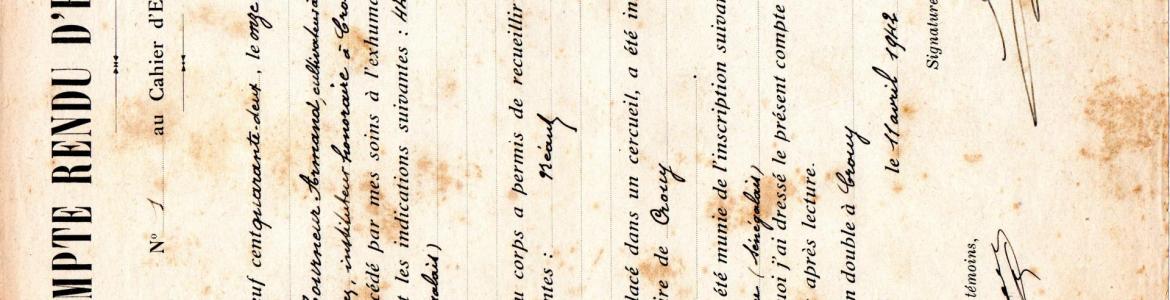 MPTE RENDU D'E
N° 1 au Cahier d'E
uf cent quarante-deux, le onze
Fourneur Armand, cultivateur à
, instituteur honoraire à Cro
cédé par mes soins à l'exhuma
t les indications suivantes :
galais)
u corps a permis de recueillir
ntes : Néant
lacé dans un cercueil, a été in
ire de Crouy
été munie de l'inscription suivan
(Sénégalais)
uoi j'ai dressé le présent compte
après lecture.
n double à Crouy
le 11 avril 1942
témoins, Signature